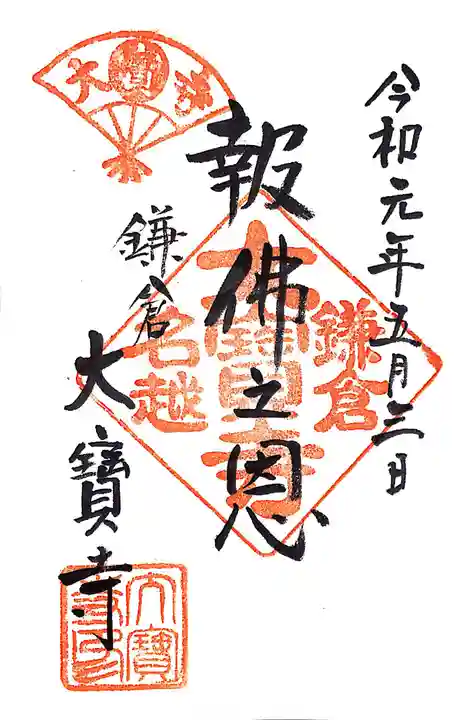 令和元年五月三日
報佛之恩
鎌倉
大寶寺
鎌倉
大寶寺
名越
大寶